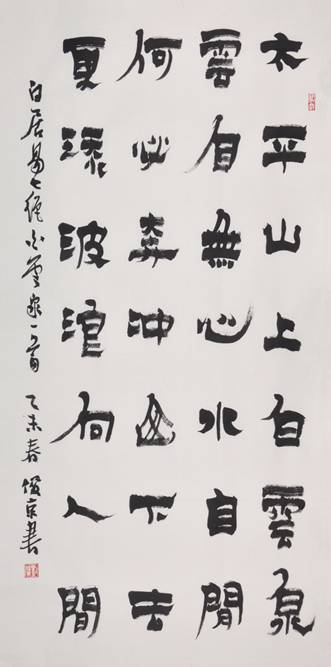 太平山上白雲泉
雲自無心水自閒
何必奔冲山下去
更添波浪向人間
白居易七絕白雲泉一首 乙未春 俊京書